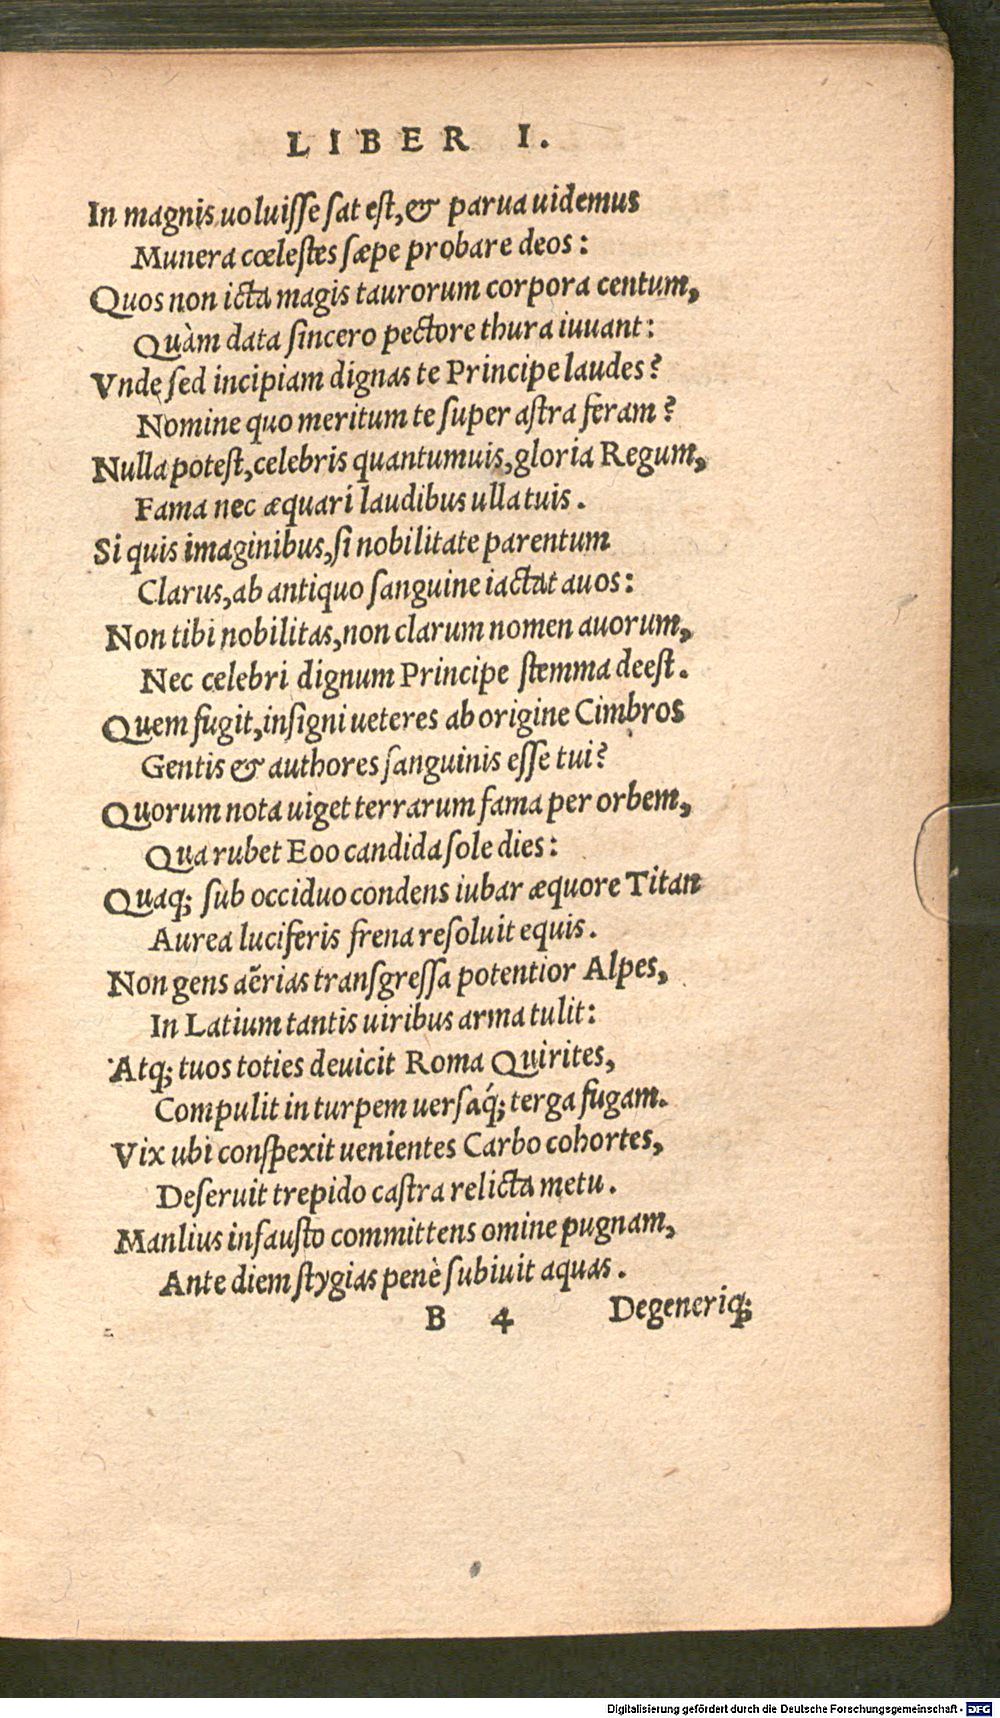 LIBER I.
In magnis uoluisse sat est, & parua uidemus
Munera cœlestes sæpe probare deos:
Quos non icta magis taurorum corpora centum,
Quàm data sincero pectore thura iuuant:
Vnde sed incipiam dignas te Principe laudes?
Nomine quo meritum te super astra feram?
Nulla potest, celebris quantumuis, gloria Regum,
Fama nec æquari laudibus ulla tuis.
Si quis imaginibus, si nobilitate parentum
Clarus, ab antiquo sanguine iactat auos:
Non tibi nobilitas, non clarum nomen auorum,
Nec celebri dignum Principe stemma deest.
Quem fugit, insigni ueteres ab origine Cimbros
Gentis & authores sanguinis esse tui?
Quorum nota uiget terrarum fama per orbem,
Qua rubet Eoo candida sole dies:
Quaq; sub occiduo condens iubar æquore Titan
Aurea luciferis frena resoluit equis.
Non gens aërias transgressa potentior Alpes,
In Latium tantis uiribus arma tulit:
Atq; tuos toties deuicit Roma Quirites,
Compulit in turpem uersaq́; terga fugam.
Vix ubi conspexit uenientes Carbo cohortes,
Deseruit trepido castra relicta metu.
Manlius infausto committens omine pugnam,
Ante diem stygias penè subiuit aquas.
B 4 Degeneriq;
Digitalisierung gefördert durch die Deutsche Forschungsgemeinschaft - DFG